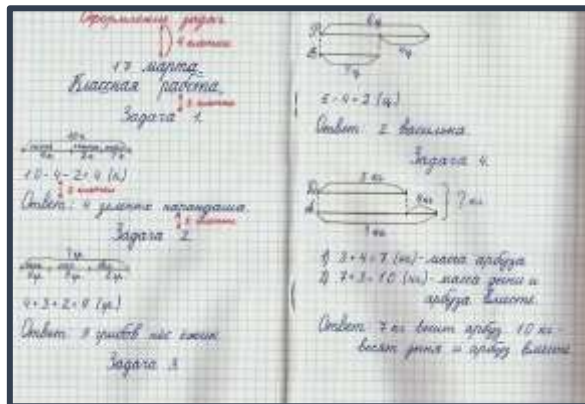 Оформление задач
4 клетки
17 марта.
Классная работа.
2 клетки
Задача 1.
10 к.
4к. 2к. ? к.
10 - 4 - 2 = 4 (к)
2 клетки
Ответ: 4 зеленых карандаша.
2 клетки
Задача 2
? гр.
4гр. 3гр. 2гр.
4 + 3 + 2 = 9 (гр.)
Ответ: 9 грибов нёс ёжик
Задача 3
6ц
Р.
В.
4ц
?ц
6 - 4 = 2 (ц)
Ответ: 2 василька.
Задача 4.
3 кг
4 кг
? кг
? кг
1) 3 + 4 = 7 (кг) - масса арбуза
2) 7 + 3 = 10 (кг) - масса дыни и
арбуза вместе.
Ответ: 7 кг весит арбуз. 10 кг
весят дыня и арбуз вместе